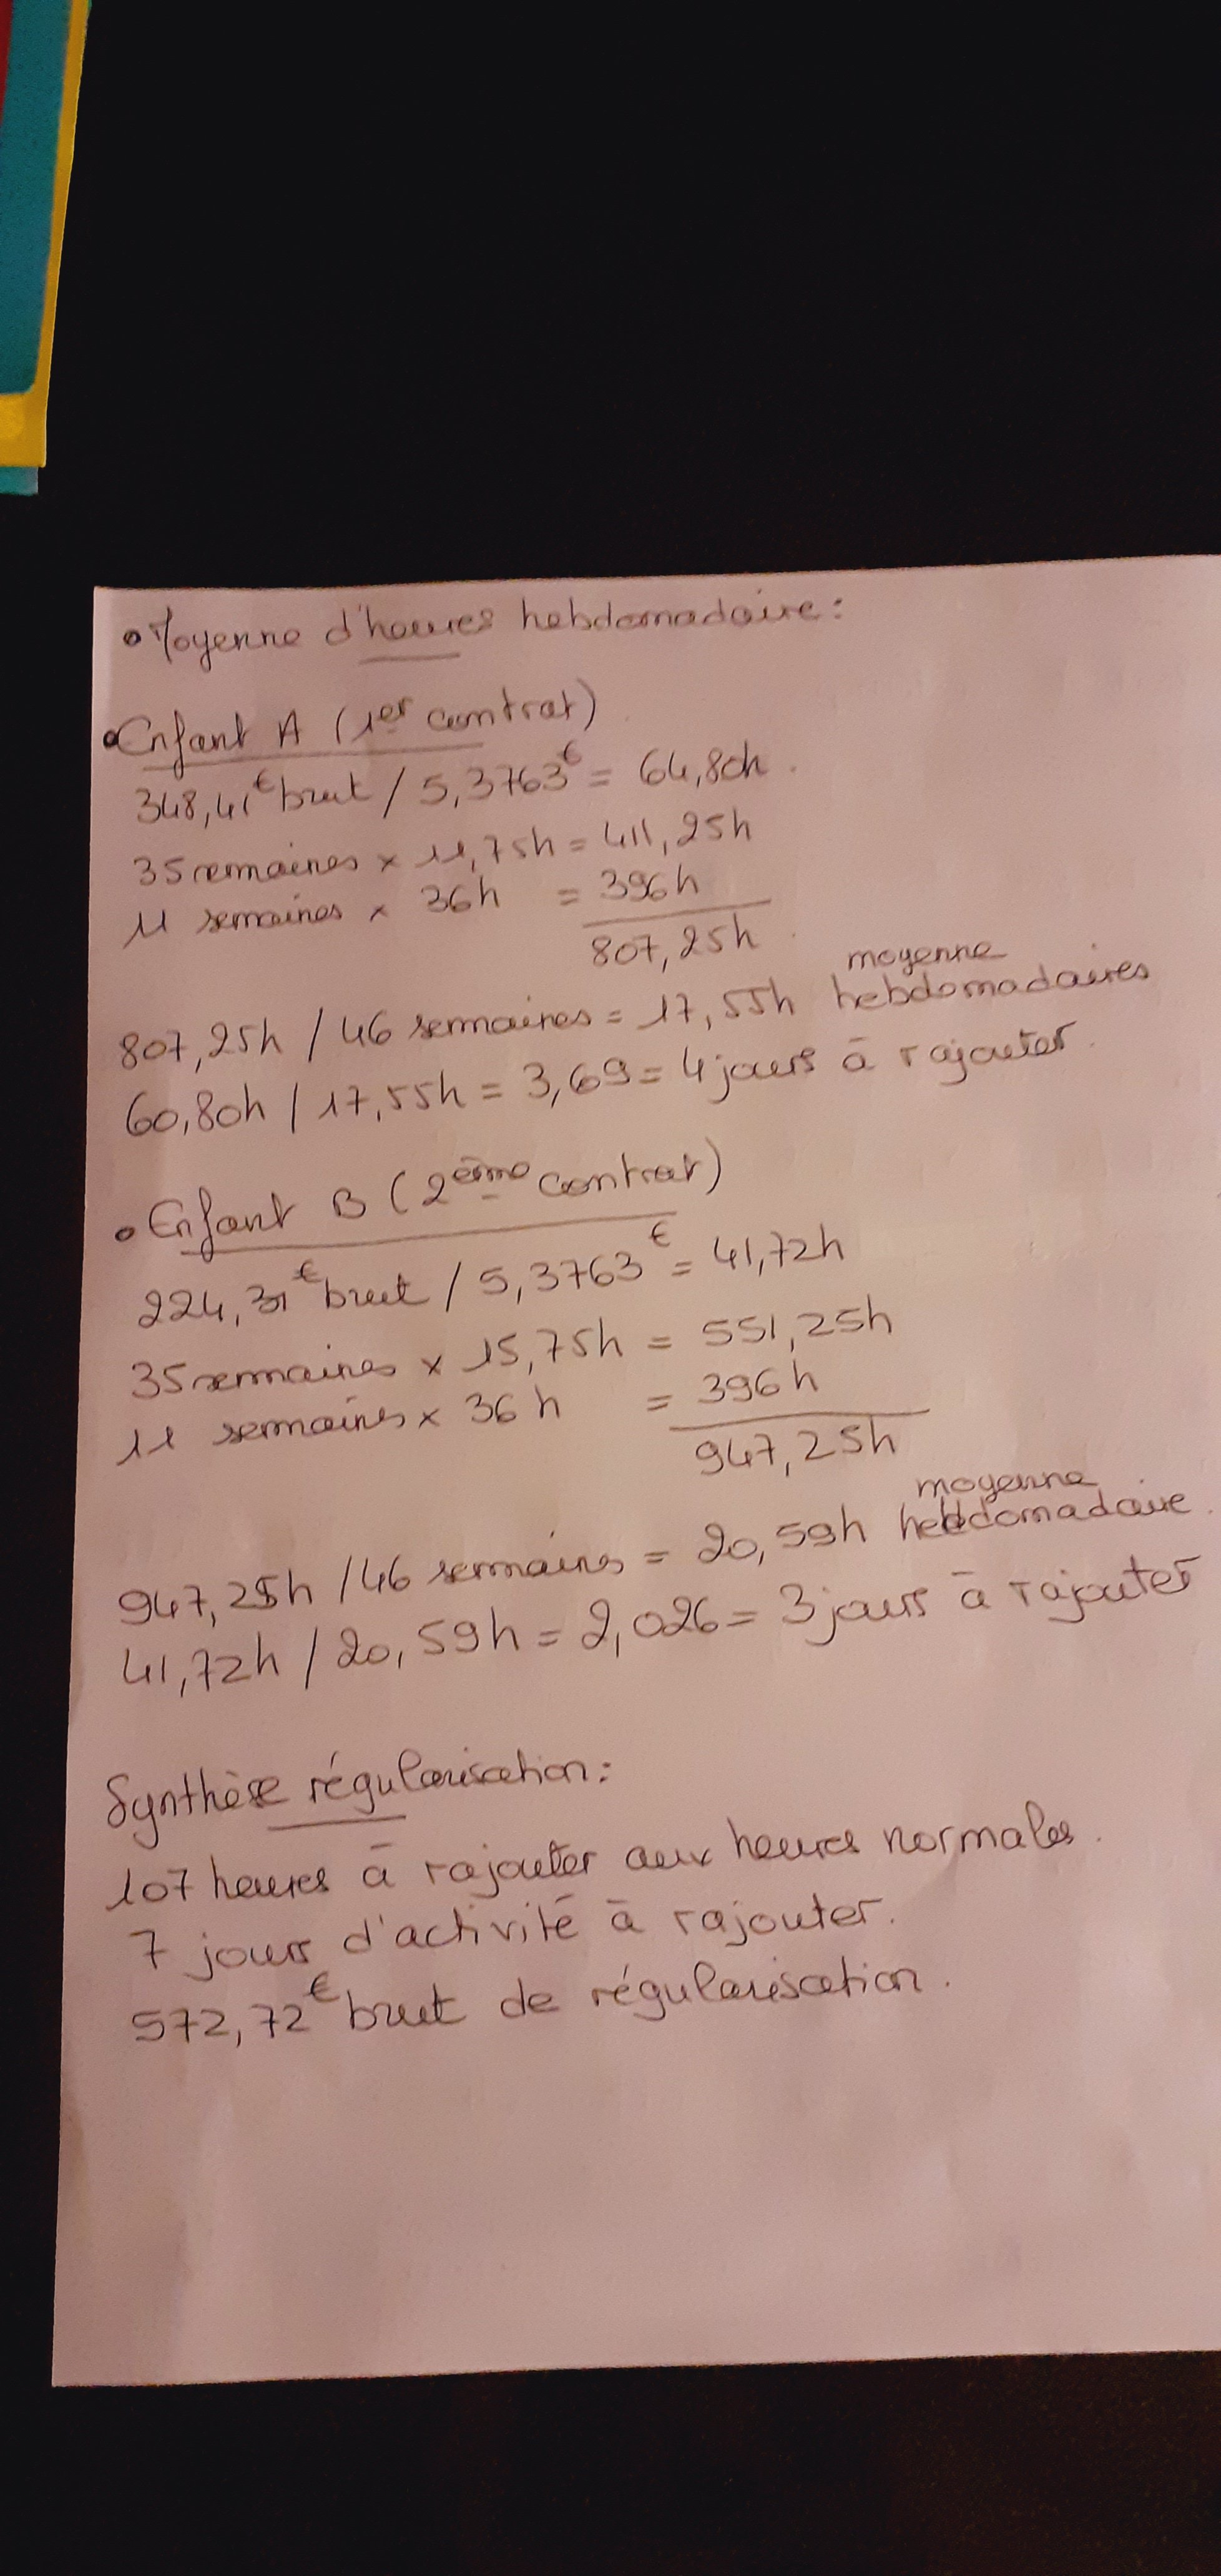 • Moyenne d'heures hebdomadaire :
• Enfant A (1er contrat)
348,41€ brut / 5,3763€ = 64,80h.
35 semaines x 11,75h = 411,25h
11 semaines x 36h = 396h
807,25h.
807,25h / 46 semaines = 17,55h moyenne hebdomadaires
60,80h / 17,55h = 3,69 = 4 jours à rajouter.
• Enfant B (2ème contrat)
224,31€ brut / 5,3763€ = 41,72h
35 semaines x 15,75h = 551,25h
11 semaines x 36h = 396h
947,25h
947,25h / 46 semaines = 20,59h moyenne hebdomadaire.
41,72h / 20,59h = 2,026 = 3 jours à rajouter
Synthèse régularisation :
107 heures à rajouter aux heures normales.
7 jours d'activité à rajouter.
572,72€ brut de régularisation.